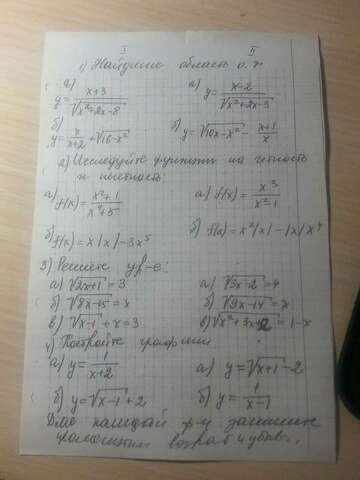 I II
1) Найдите область о. ф
а) y = x+3 / √(x²+2x-8) а) y = x-2 / √(x²+2x-3)
б) y = x / (x+2) + √(16-x²) б) y = √(10x-x²) - (x+1) / x
2) Исследуйте функцию на четность
и нечетность:
а) f(x) = (x²+1) / (x⁴+5) а) f(x) = x³ / (x²-1)
б) f(x) = x|x|-3x⁵ б) f(x) = x²|x|-|x|x⁴
3) Решите ур-е:
а) √(2x+1) = 3 а) √(3x-2) = 4
б) √(8x-15) = x б) √(9x-14) = x
в) √(x-1) + x = 3 в) √(x²+3x+2) = 1-x
4) Постройте графики
а) y = 1 / (x+2) а) y = √(x+1) - 2
б) y = √(x-1) + 2 б) y = 1 / (x-1)
Для каждой ф-и запишите
промежутки возраб и убыв.